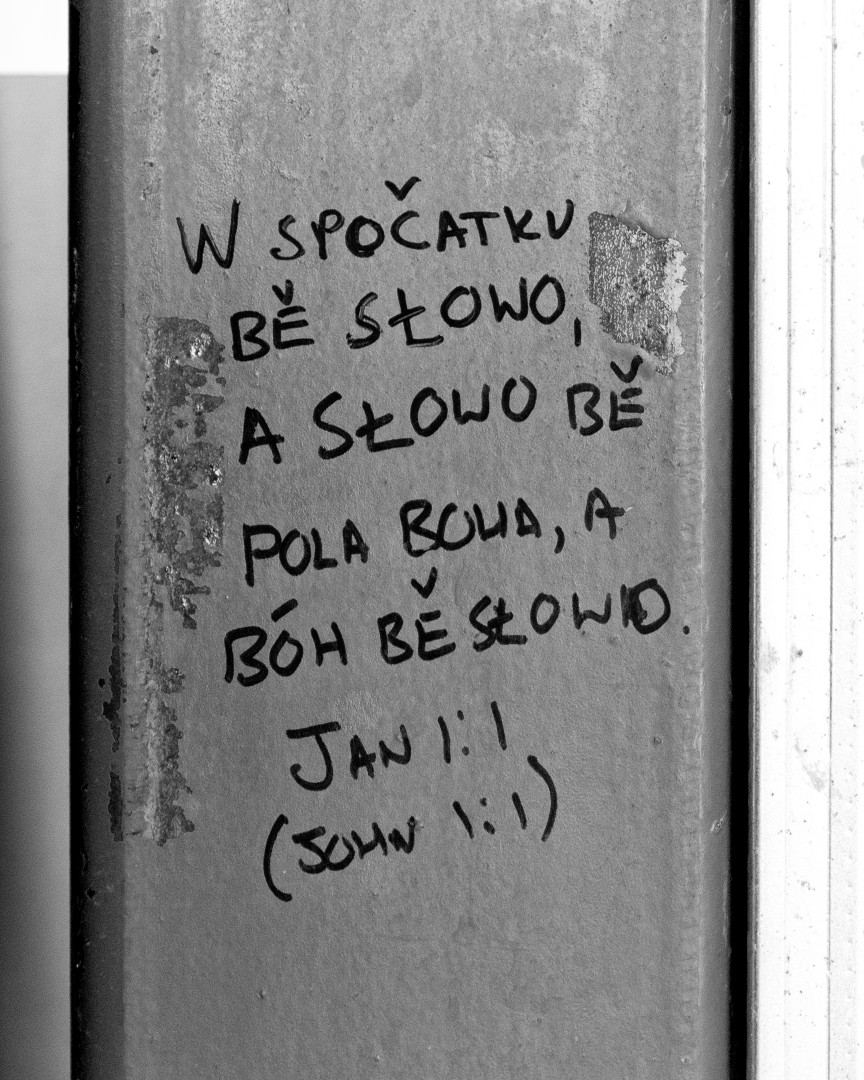 W SPOČATKU
BĚ SŁOWO,
A SŁOWO BĚ
POLA BOHA, A
BÓH BĚ SŁOWO.
JAN 1:1
(JOHN 1:1)